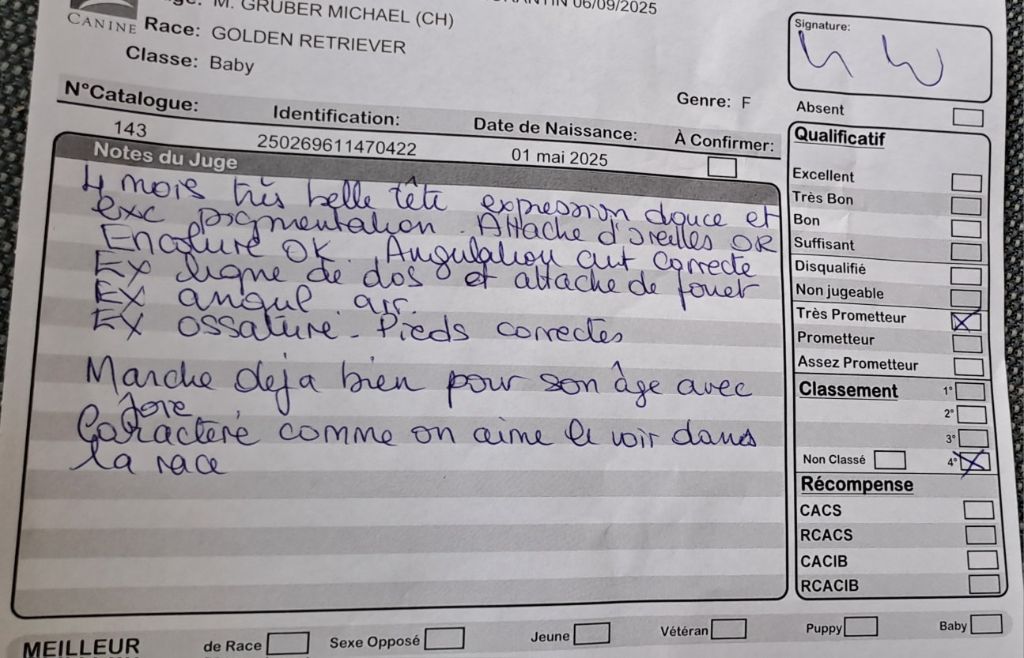 M. GRUBER MICHAEL (CH)
06/09/2025
CANINE
Race: GOLDEN RETRIEVER
Classe: Baby
Genre: F
N°Catalogue: Identification: Date de Naissance: À Confirmer:
143 250269611470422 01 mai 2025
Notes du Juge
4 mois très belle tête expression douce et
exc pigmentation. Attache d'oreilles OK
Encolure OK. Angulation ant correcte
EX ligne de dos et attache de fouet
EX angul. arr.
EX ossature. Pieds correctes
Marche deja bien pour son âge avec
joie
Caractère comme on aime le voir dans
la race
Signature:
Absent
Qualificatif
Excellent
Très Bon
Bon
Suffisant
Disqualifié
Non jugeable
Très Prometteur X
Prometteur
Assez Prometteur
Classement 1°
2°
3°
Non Classé 4° X
Récompense
CACS
RCACS
CACIB
RCACIB
MEILLEUR de Race Sexe Opposé Jeune Vétéran Puppy Baby